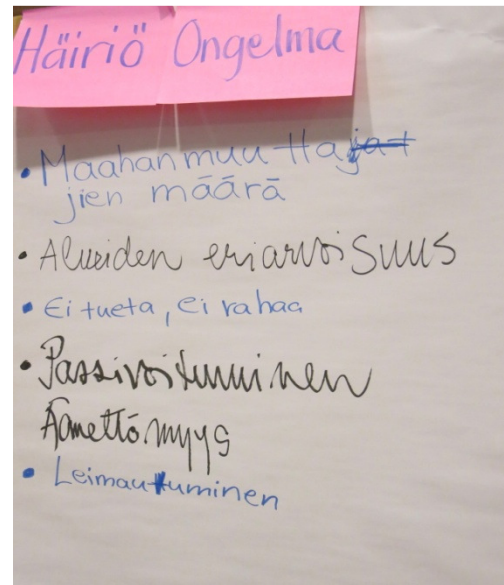 Häiriö Ongelma
• Maahanmuuttajat
jien määrä
• Alueiden eriarvoisuus
• Ei tueta, ei rahaa
• Passivoituminen
Äänettömyys
• Leimautuminen